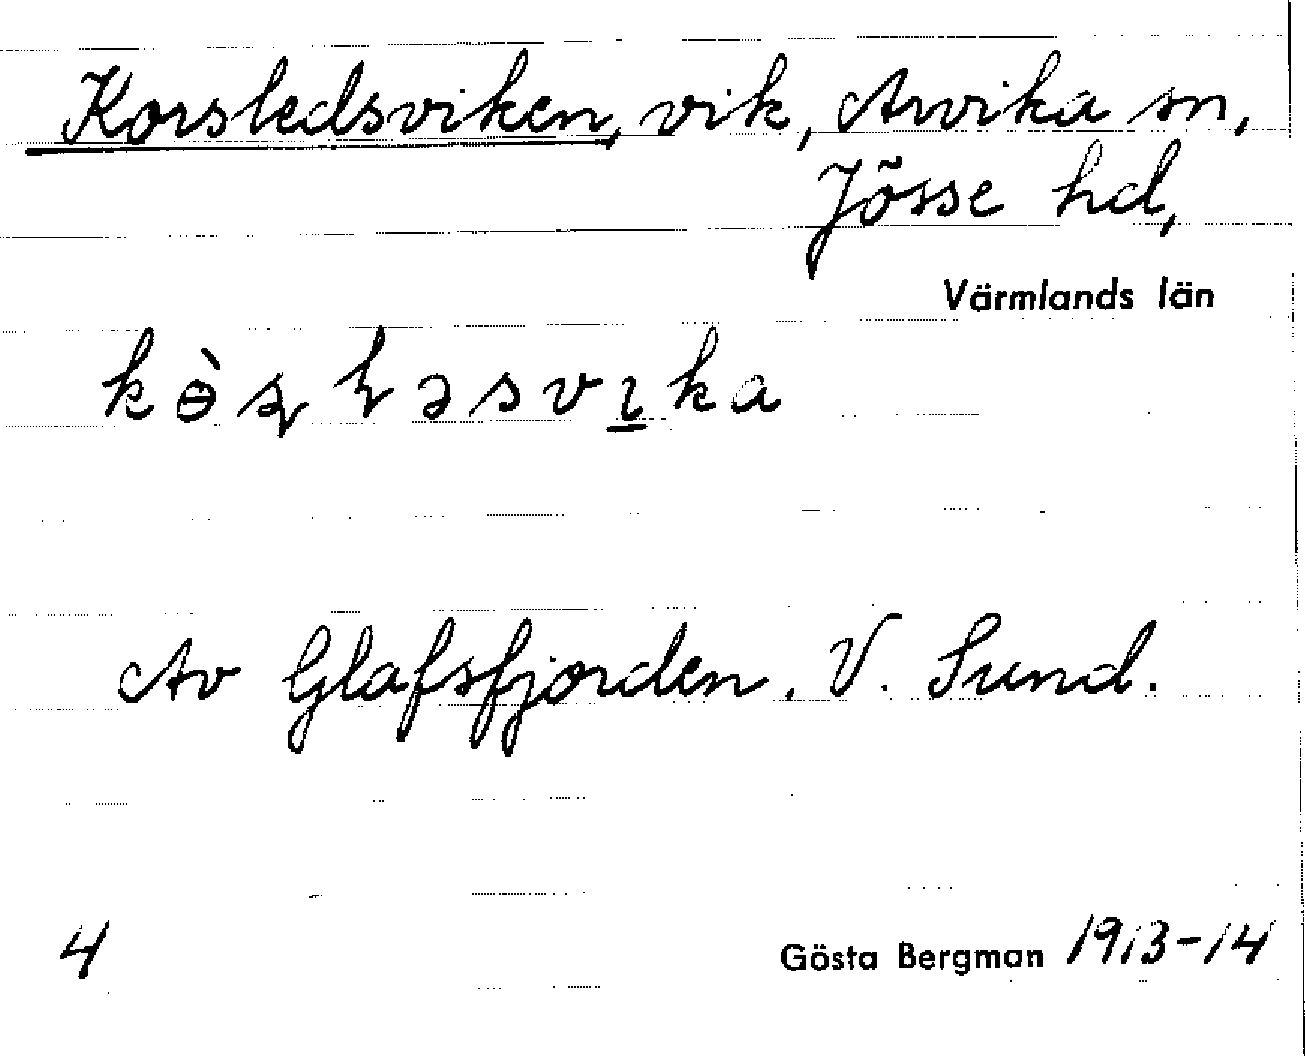 Korsledsviken, vik, Arvika sn,
Jösse hd,
Värmlands län
kɵ̀ʂɭəsvı̲ka
Av Glafsfjorden. V. Sund.
4
Gösta Bergman 1913-14